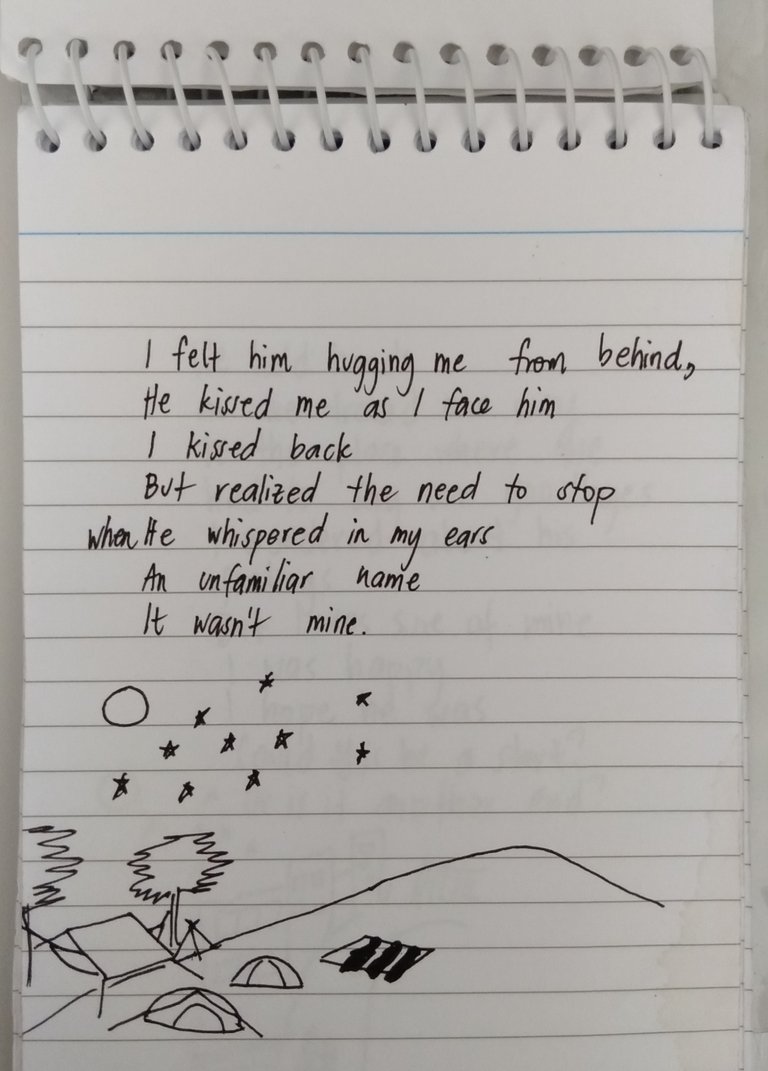 I felt him hugging me from behind,
He kissed me as I face him
I kissed back
But realized the need to stop
when He whispered in my ears
An unfamiliar name
It wasn't mine.